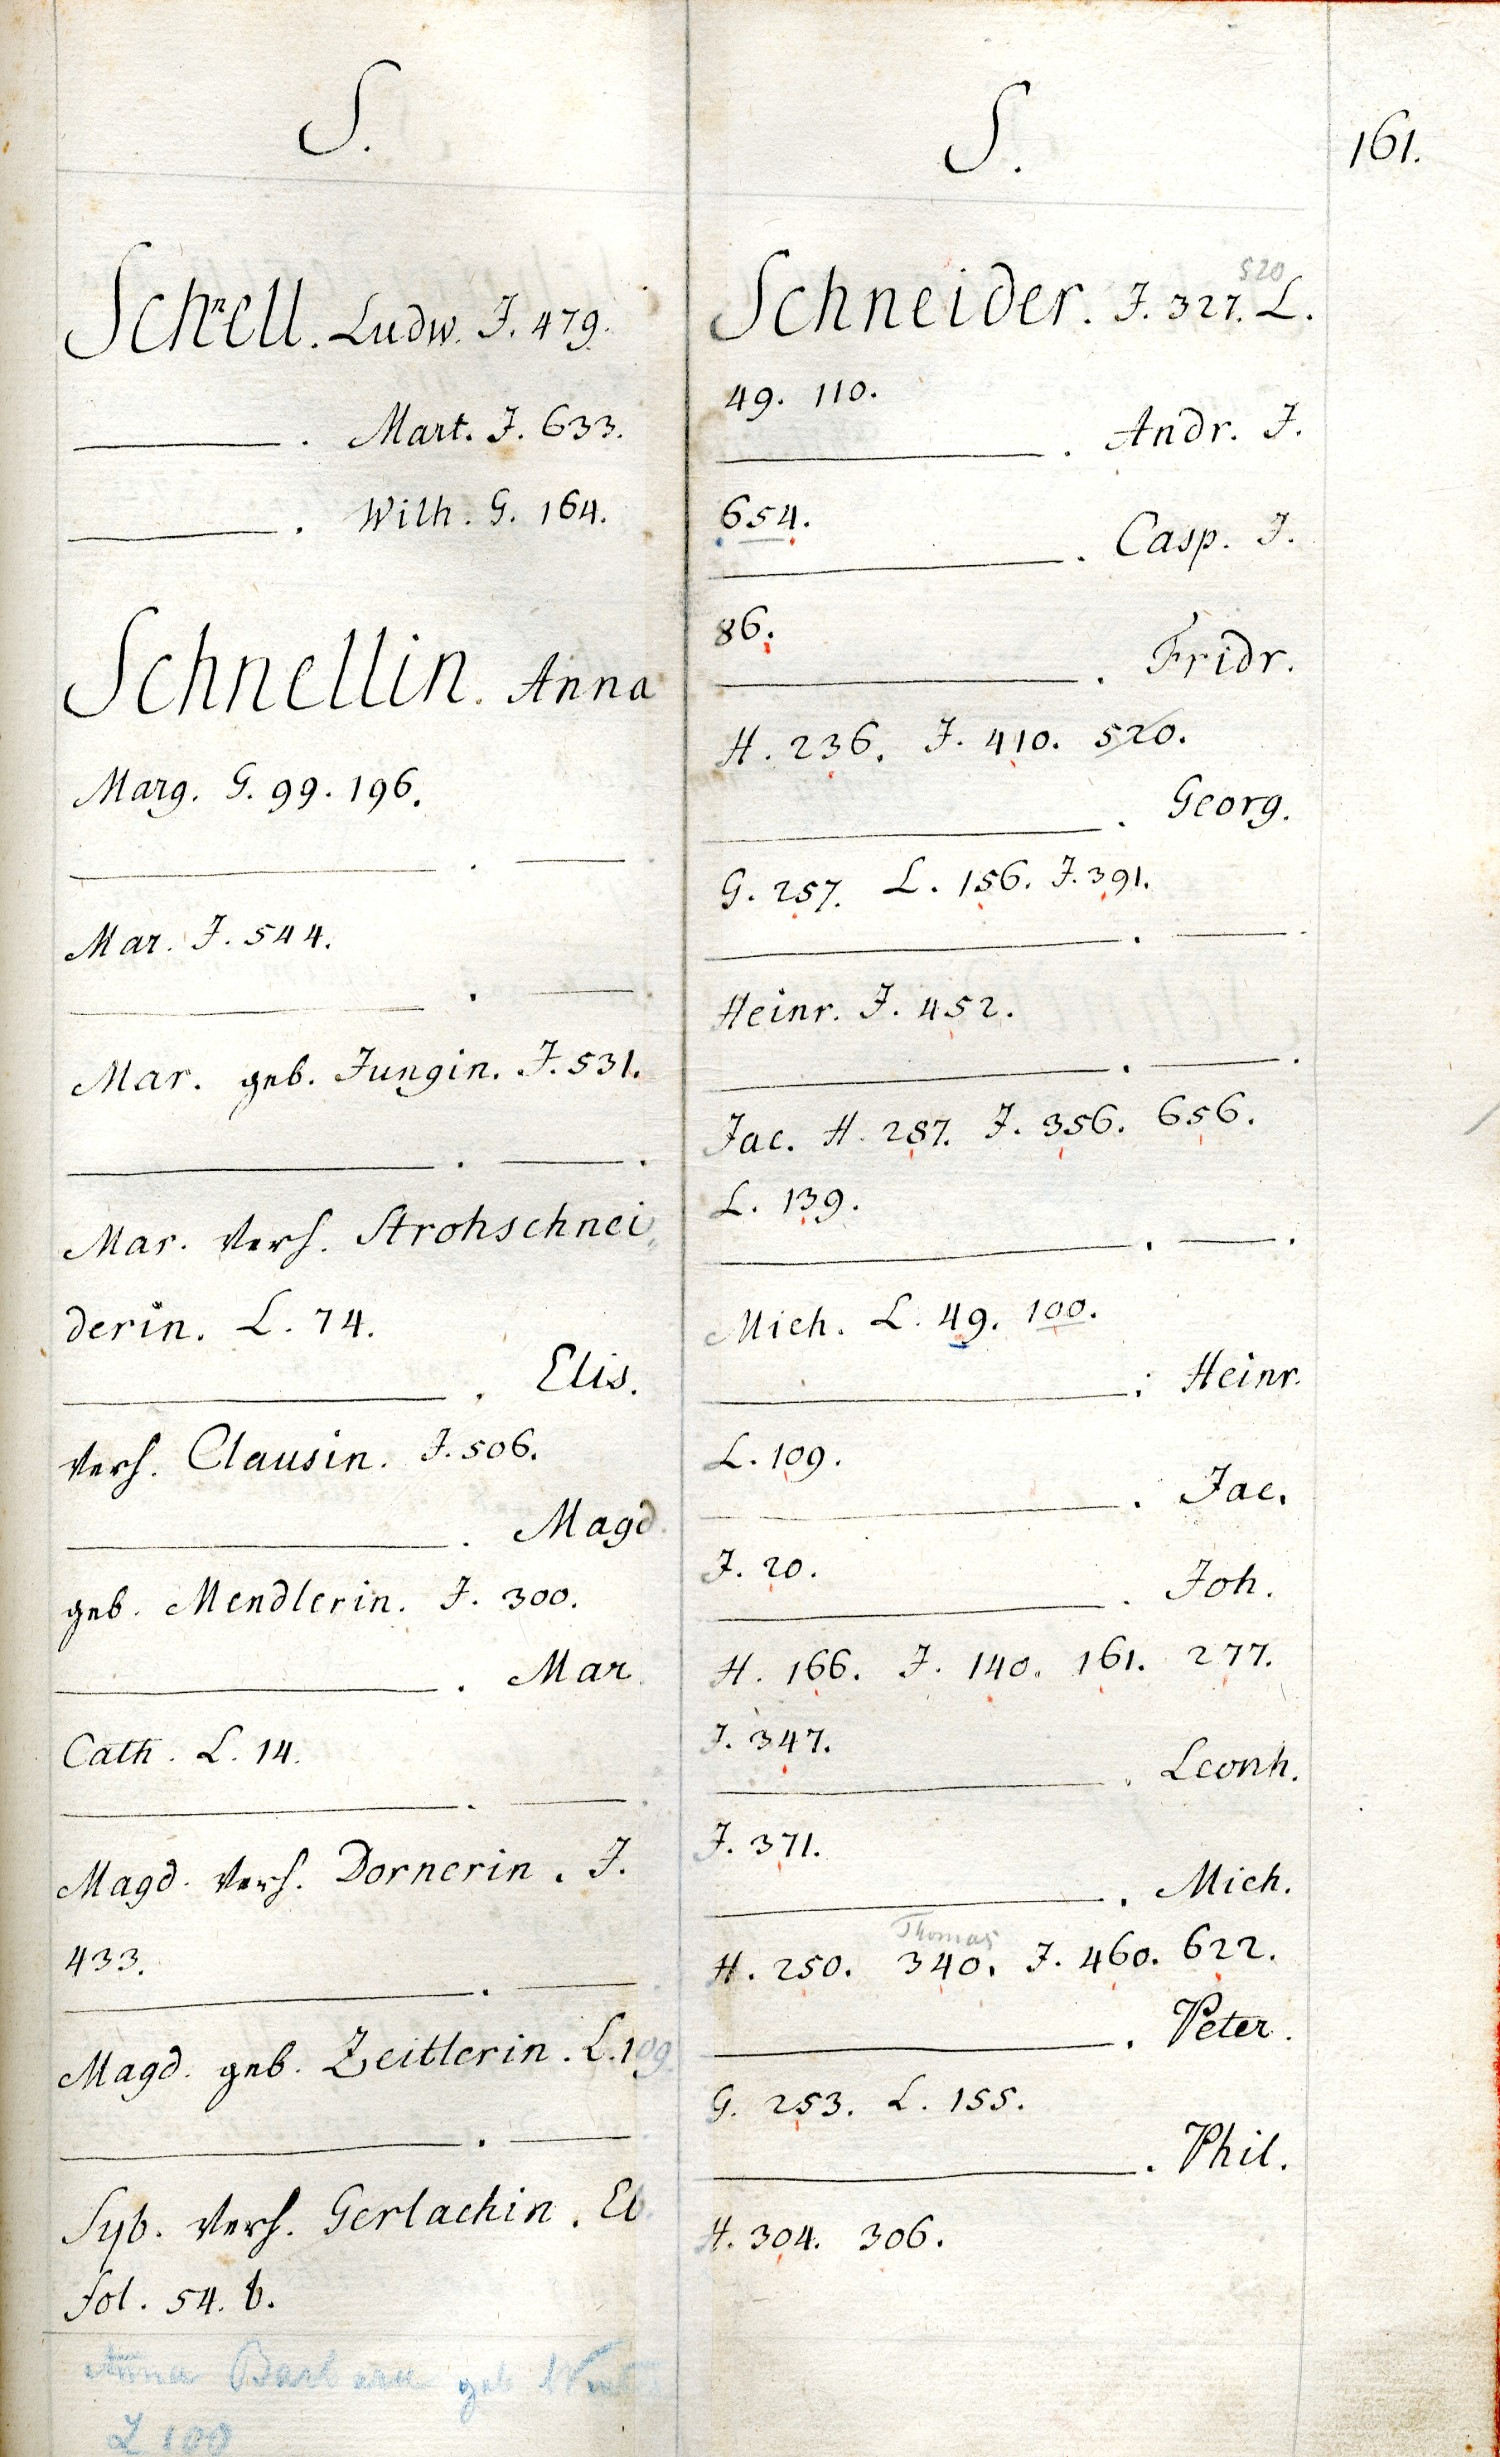 S.
Schnell. Ludw. J. 479.
———. Mart. J. 633.
———. Wilh. G. 164.
Schnellin. Anna
Marg. G. 99. 196.
———. ———.
Mar. J. 544.
———. ———.
Mar. geb. Jungin. J. 531.
———. ———.
Mar. verh. Strohschnei
derin. L. 74.
———. Elis.
verh. Clausin. J. 506.
———. Magd.
geb. Mendlerin. J. 300.
———. Mar.
Cath. L. 14.
———. ———.
Magd. verh. Dornerin. J.
433.
———. ———
Magd. geb. Zeitlerin. L. 109.
———. ———
Syb. verh. Gerlachin. El.
fol. 54. b.
Anna Barbara geb.
L 100
S.
161.
520
Schneider. J. 327. L.
49. 110.
———. Andr. J.
654.
———. Casp. J.
86.
———. Fridr.
H. 236. J. 410. 520.
———. Georg.
G. 257. L. 156. J. 391.
———. ———.
Heinr. J. 452.
———. ———.
Jac. H. 287. J. 356. 656.
L. 139.
———. ———.
Mich. L. 49. 100.
———. Heinr.
L. 109.
———. Jac.
J. 20.
———. Joh.
H. 166. J. 140. 161. 277.
J. 347.
———. Leonh.
J. 371.
———. Mich.
Thomas
H. 250. 340. J. 460. 622.
———. Peter.
G. 253. L. 155.
———. Phil.
H. 304. 306.